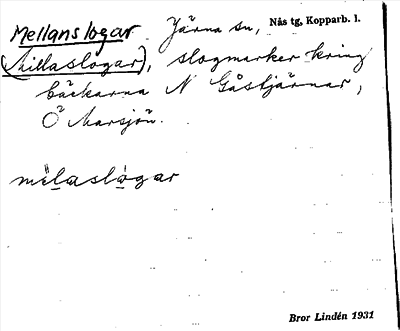 Mellanslogar Järna sn, Nås tg, Kopparb. l.
(Millaslogar), slogmarker kring
bäckarna N Gåstjärnar,
Ö Marsjön.
mèlaslògar
Bror Lindén 1931